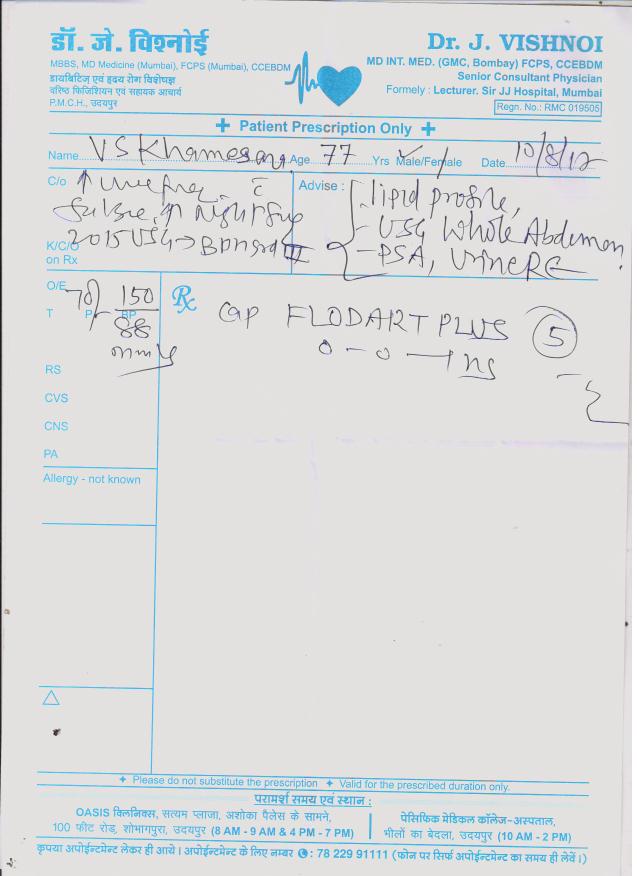 डॉ. जे. विश्नोई
MBBS, MD Medicine (Mumbai), FCPS (Mumbai), CCEBDM
डायबिटिज़ एवं हृदय रोग विशेषज्ञ
वरिष्ठ फिजिशियन एवं सहायक आचार्य
P.M.C.H., उदयपुर
Dr. J. VISHNOI
MD INT. MED. (GMC, Bombay) FCPS, CCEBDM
Senior Consultant Physician
Formely : Lecturer. Sir JJ Hospital, Mumbai
Regn. No.: RMC 019505
+ Patient Prescription Only +
Name VS Age 77 Yrs Male/Female Date 10/8/
C/o ↑
Night
2015 USG → BPH III
K/C/O
on Rx
Advise : lipid profile,
- USG Whole Abdomen
- PSA, Urine RE
O/E
T P 78/ BP 150/88
mmHg
RS
CVS
CNS
PA
Allergy - not known
Rx Cap FLODART PLUS 5
0 - 0 - 1
△
+ Please do not substitute the prescription + Valid for the prescribed duration only.
परामर्श समय एवं स्थान :
OASIS क्लिनिक्स, सत्यम प्लाजा, अशोका पैलेस के सामने,
100 फीट रोड, शोभागपुरा, उदयपुर (8 AM - 9 AM & 4 PM - 7 PM)
पेसिफिक मेडिकल कॉलेज-अस्पताल,
भीलों का बेदला, उदयपुर (10 AM - 2 PM)
कृपया अपोईन्टमेन्ट लेकर ही आये। अपोईन्टमेन्ट के लिए नम्बर : 78 229 91111 (फोन पर सिर्फ अपोईन्टमेन्ट का समय ही लेवें।)